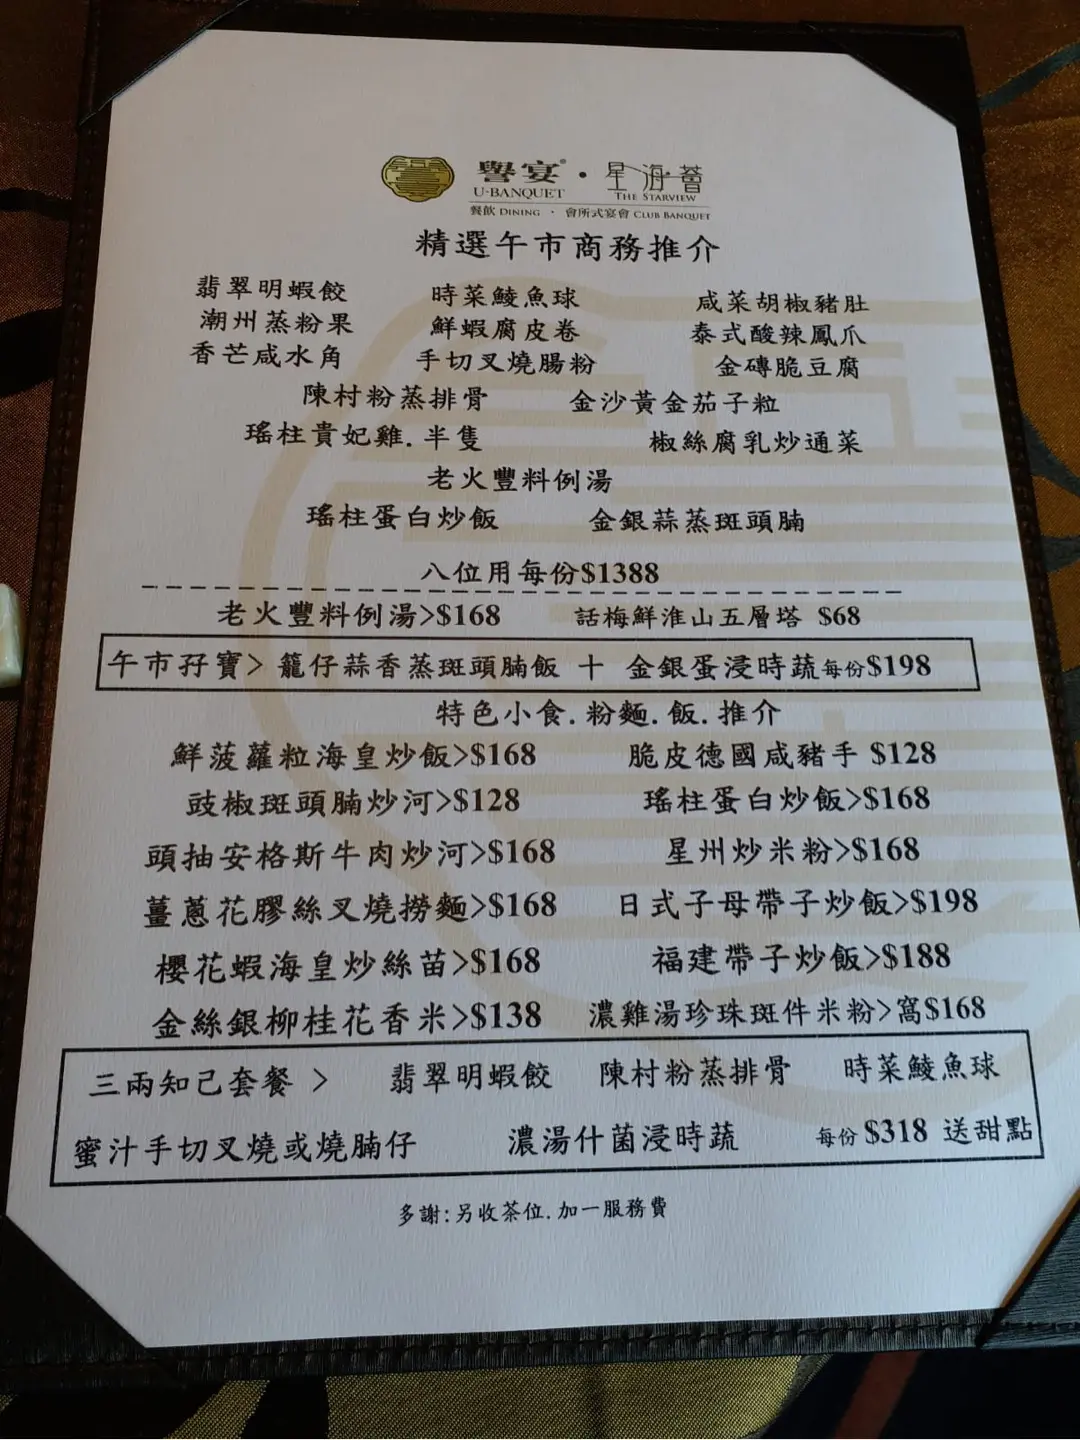 譽宴® · 星海薈
U·BANQUET THE STARVIEW
餐飲 DINING · 會所式宴會 CLUB BANQUET
精選午市商務推介
翡翠明蝦餃 時菜鯪魚球 咸菜胡椒豬肚
潮州蒸粉果 鮮蝦腐皮卷 泰式酸辣鳳爪
香芒咸水角 手切叉燒腸粉 金磚脆豆腐
陳村粉蒸排骨 金沙黃金茄子粒
瑤柱貴妃雞.半隻 椒絲腐乳炒通菜
老火豐料例湯
瑤柱蛋白炒飯 金銀蒜蒸斑頭腩
八位用每份$1388
老火豐料例湯>$168 話梅鮮淮山五層塔 $68
午市孖寶> 籠仔蒜香蒸斑頭腩飯 十 金銀蛋浸時蔬每份$198
特色小食.粉麵.飯.推介
鮮菠蘿粒海皇炒飯>$168 脆皮德國咸豬手 $128
豉椒斑頭腩炒河>$128 瑤柱蛋白炒飯>$168
頭抽安格斯牛肉炒河>$168 星州炒米粉>$168
薑蔥花膠絲叉燒撈麵>$168 日式子母帶子炒飯>$198
櫻花蝦海皇炒絲苗>$168 福建帶子炒飯>$188
金絲銀柳桂花香米>$138 濃雞湯珍珠斑件米粉>窩$168
三兩知己套餐 > 翡翠明蝦餃 陳村粉蒸排骨 時菜鯪魚球
蜜汁手切叉燒或燒腩仔 濃湯什菌浸時蔬 每份 $318 送甜點
多謝:另收茶位.加一服務費